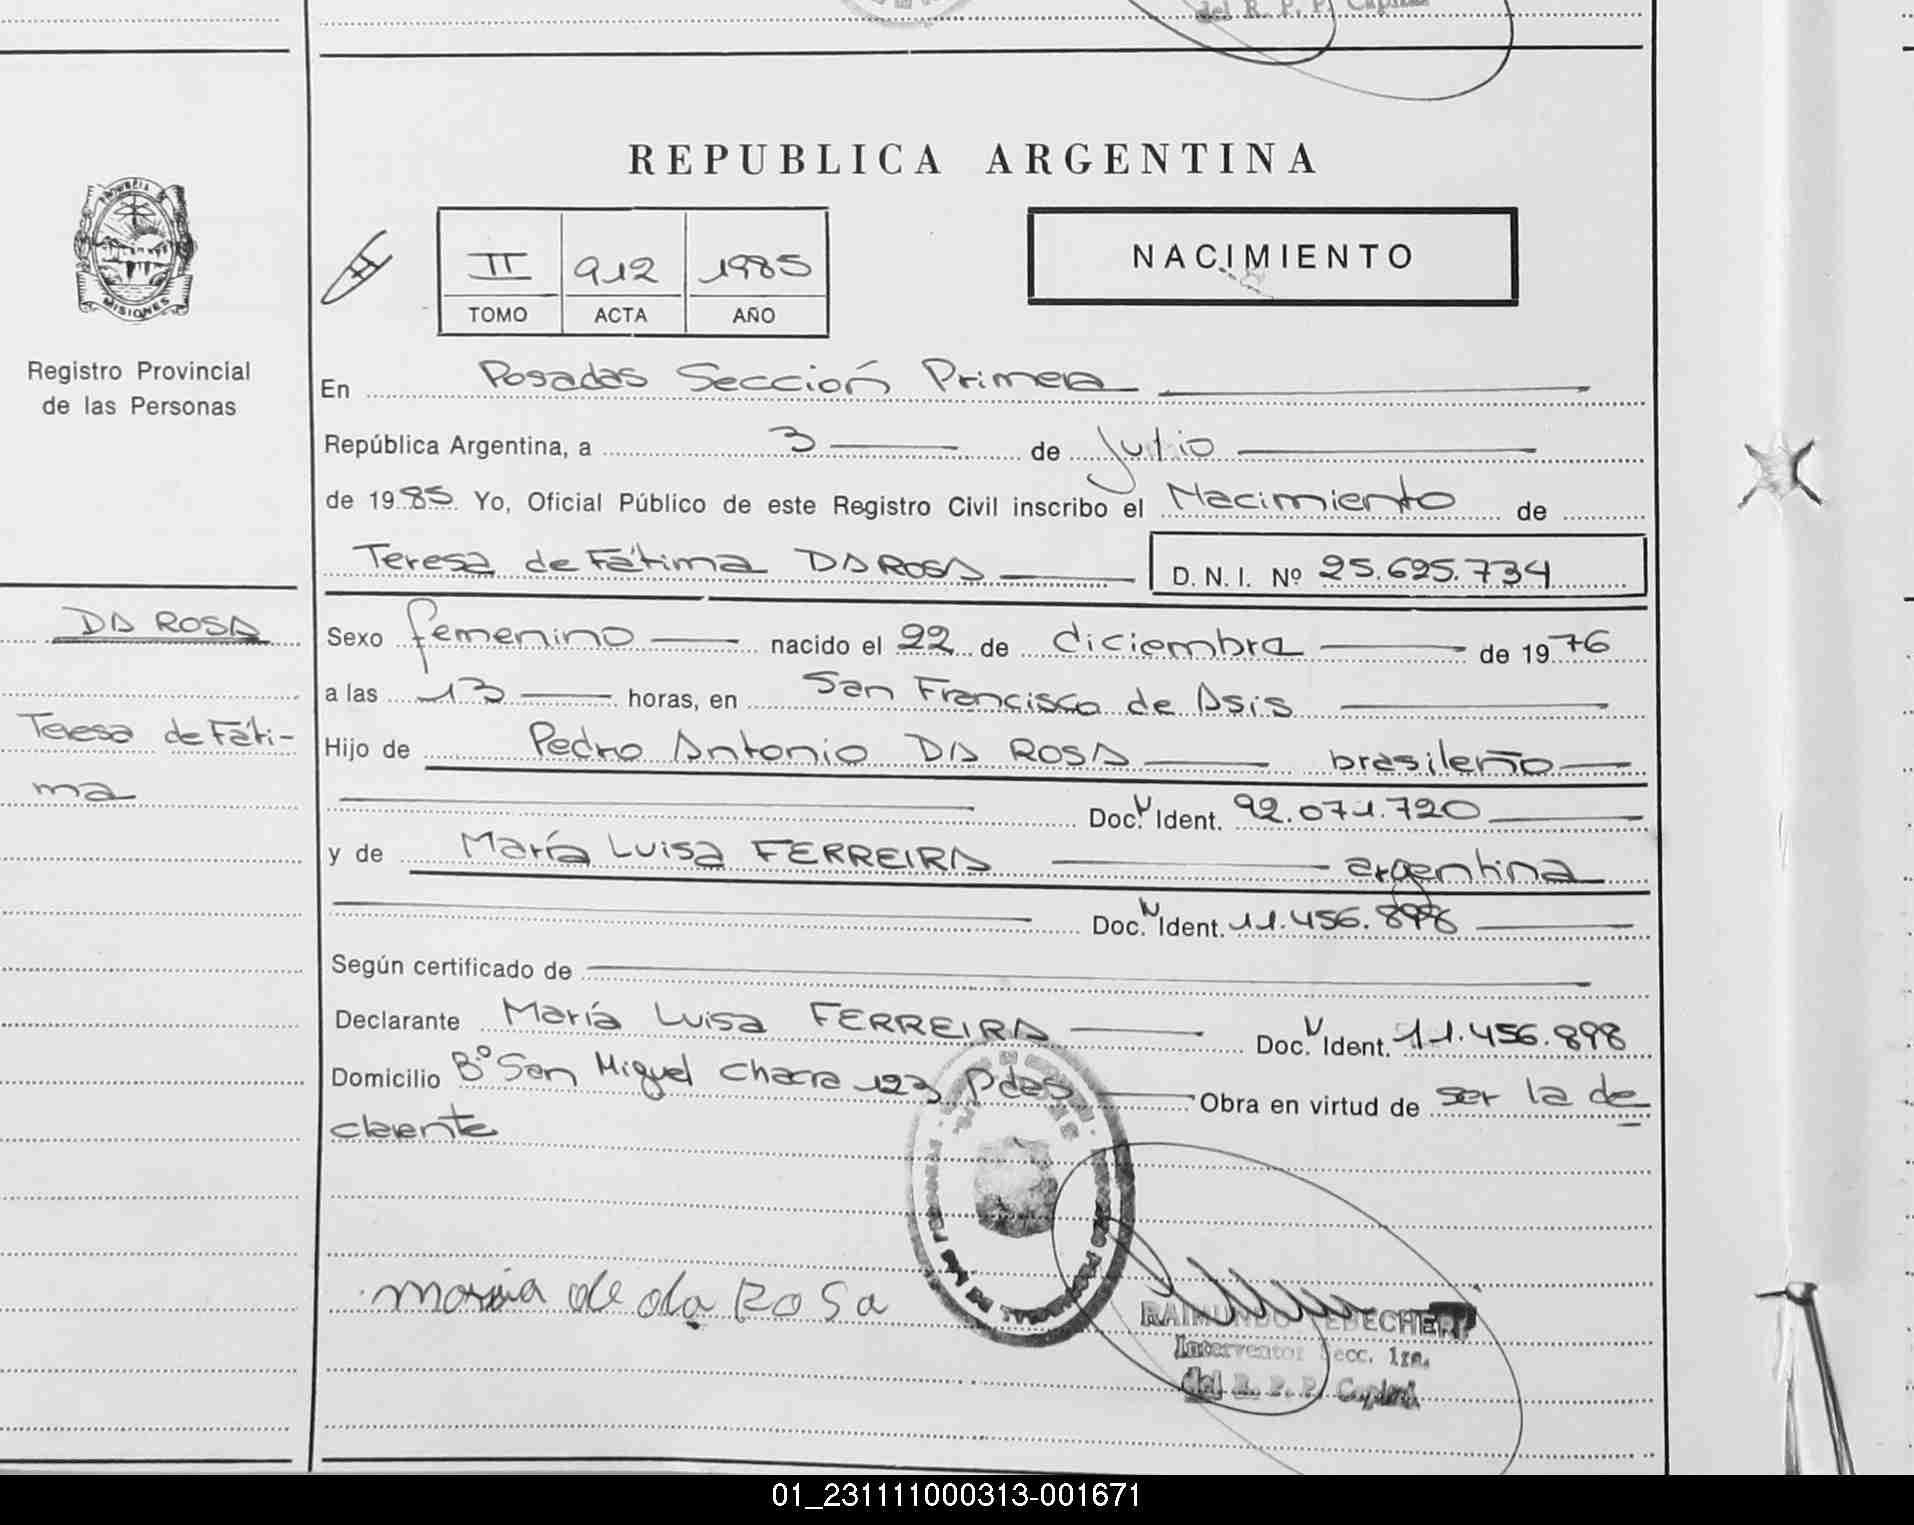 del R. P. P. Capital
REPUBLICA ARGENTINA
PROVINCIA
MISIONES
II 912 1985
TOMO ACTA AÑO
NACIMIENTO
Registro Provincial
de las Personas
En Posadas Sección Primera
República Argentina, a 3 de Julio
de 1985 Yo, Oficial Público de este Registro Civil inscribo el Nacimiento de
Teresa de Fátima DA ROSA D. N. I. Nº 25.625.734
DA ROSA
Teresa de Fáti-
ma
Sexo femenino nacido el 22 de diciembre de 1976
a las 13 horas, en San Francisco de Asis
Hijo de Pedro Antonio DA ROSA brasileño
Doc. Ident. 92.071.720
y de María Luisa FERREIRA argentina
Doc. Ident. 11.456.898
Según certificado de
Declarante María Luisa FERREIRA Doc. Ident. 11.456.898
Domicilio Bº San Miguel chacra 123 Pdas Obra en virtud de ser la de
clarante
maria de da Rosa
Interventor Secc. 1ra.
del R. P. P. Capital
01_231111000313-001671